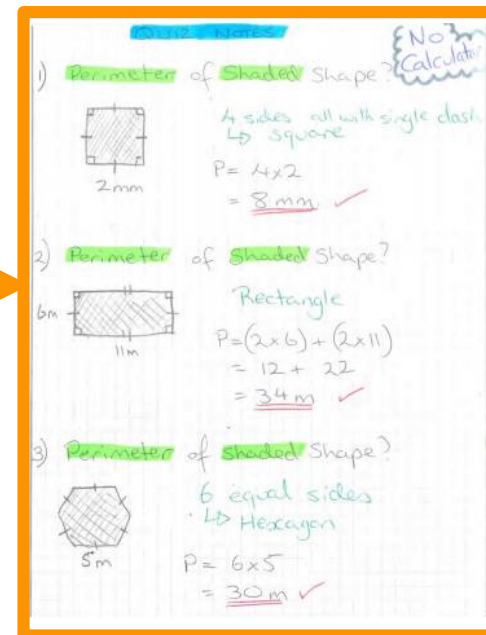 QUIZ NOTES
No
Calculator
1) Perimeter of Shaded Shape?
4 sides all with single dash
↳ square
2mm
P = 4x2
= 8mm ✓
2) Perimeter of Shaded Shape?
Rectangle
6m
11m
P=(2x6)+(2x11)
= 12 + 22
= 34m ✓
3) Perimeter of Shaded Shape?
6 equal sides
↳ Hexcagon
5m
P = 6x5
= 30m ✓